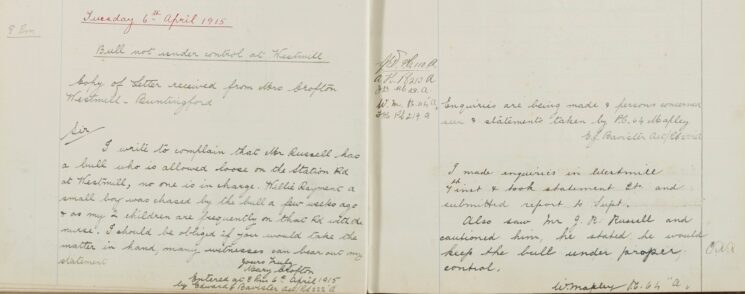 8 Pm
Tuesday 6th April 1915
Bull not under control at Westmill
Copy of Letter received from Mrs Crofton
Westmill - Buntingford
Sir,
I write to complain that Mr Russell has
a bull who is allowed loose on the Station Rd
at Westmill, no one is in charge. Willie Rayment a
small boy was chased by the bull a few weeks ago
& as my 2 children are frequently on that Rd with the
nurse. I should be obliged if you would take the
matter in hand, many witnesses can bear out my
statement
Yours truly
Mary Crofton
Entered at 8 Pm 6th April 1915
by Edward J Banister Act. Pc 222 A
Enquiries are being made & persons concerned
seen & statements taken by Pc. 64 Mapley
E.J. Banister Act/
I made enquiries in Westmill
7th inst & took statement Etc. and
submitted report to Supt.
Also saw Mr J. R. Russell and
cautioned him, he stated he would
keep the bull under proper
control.
W Mapley Pc. 64 "A".